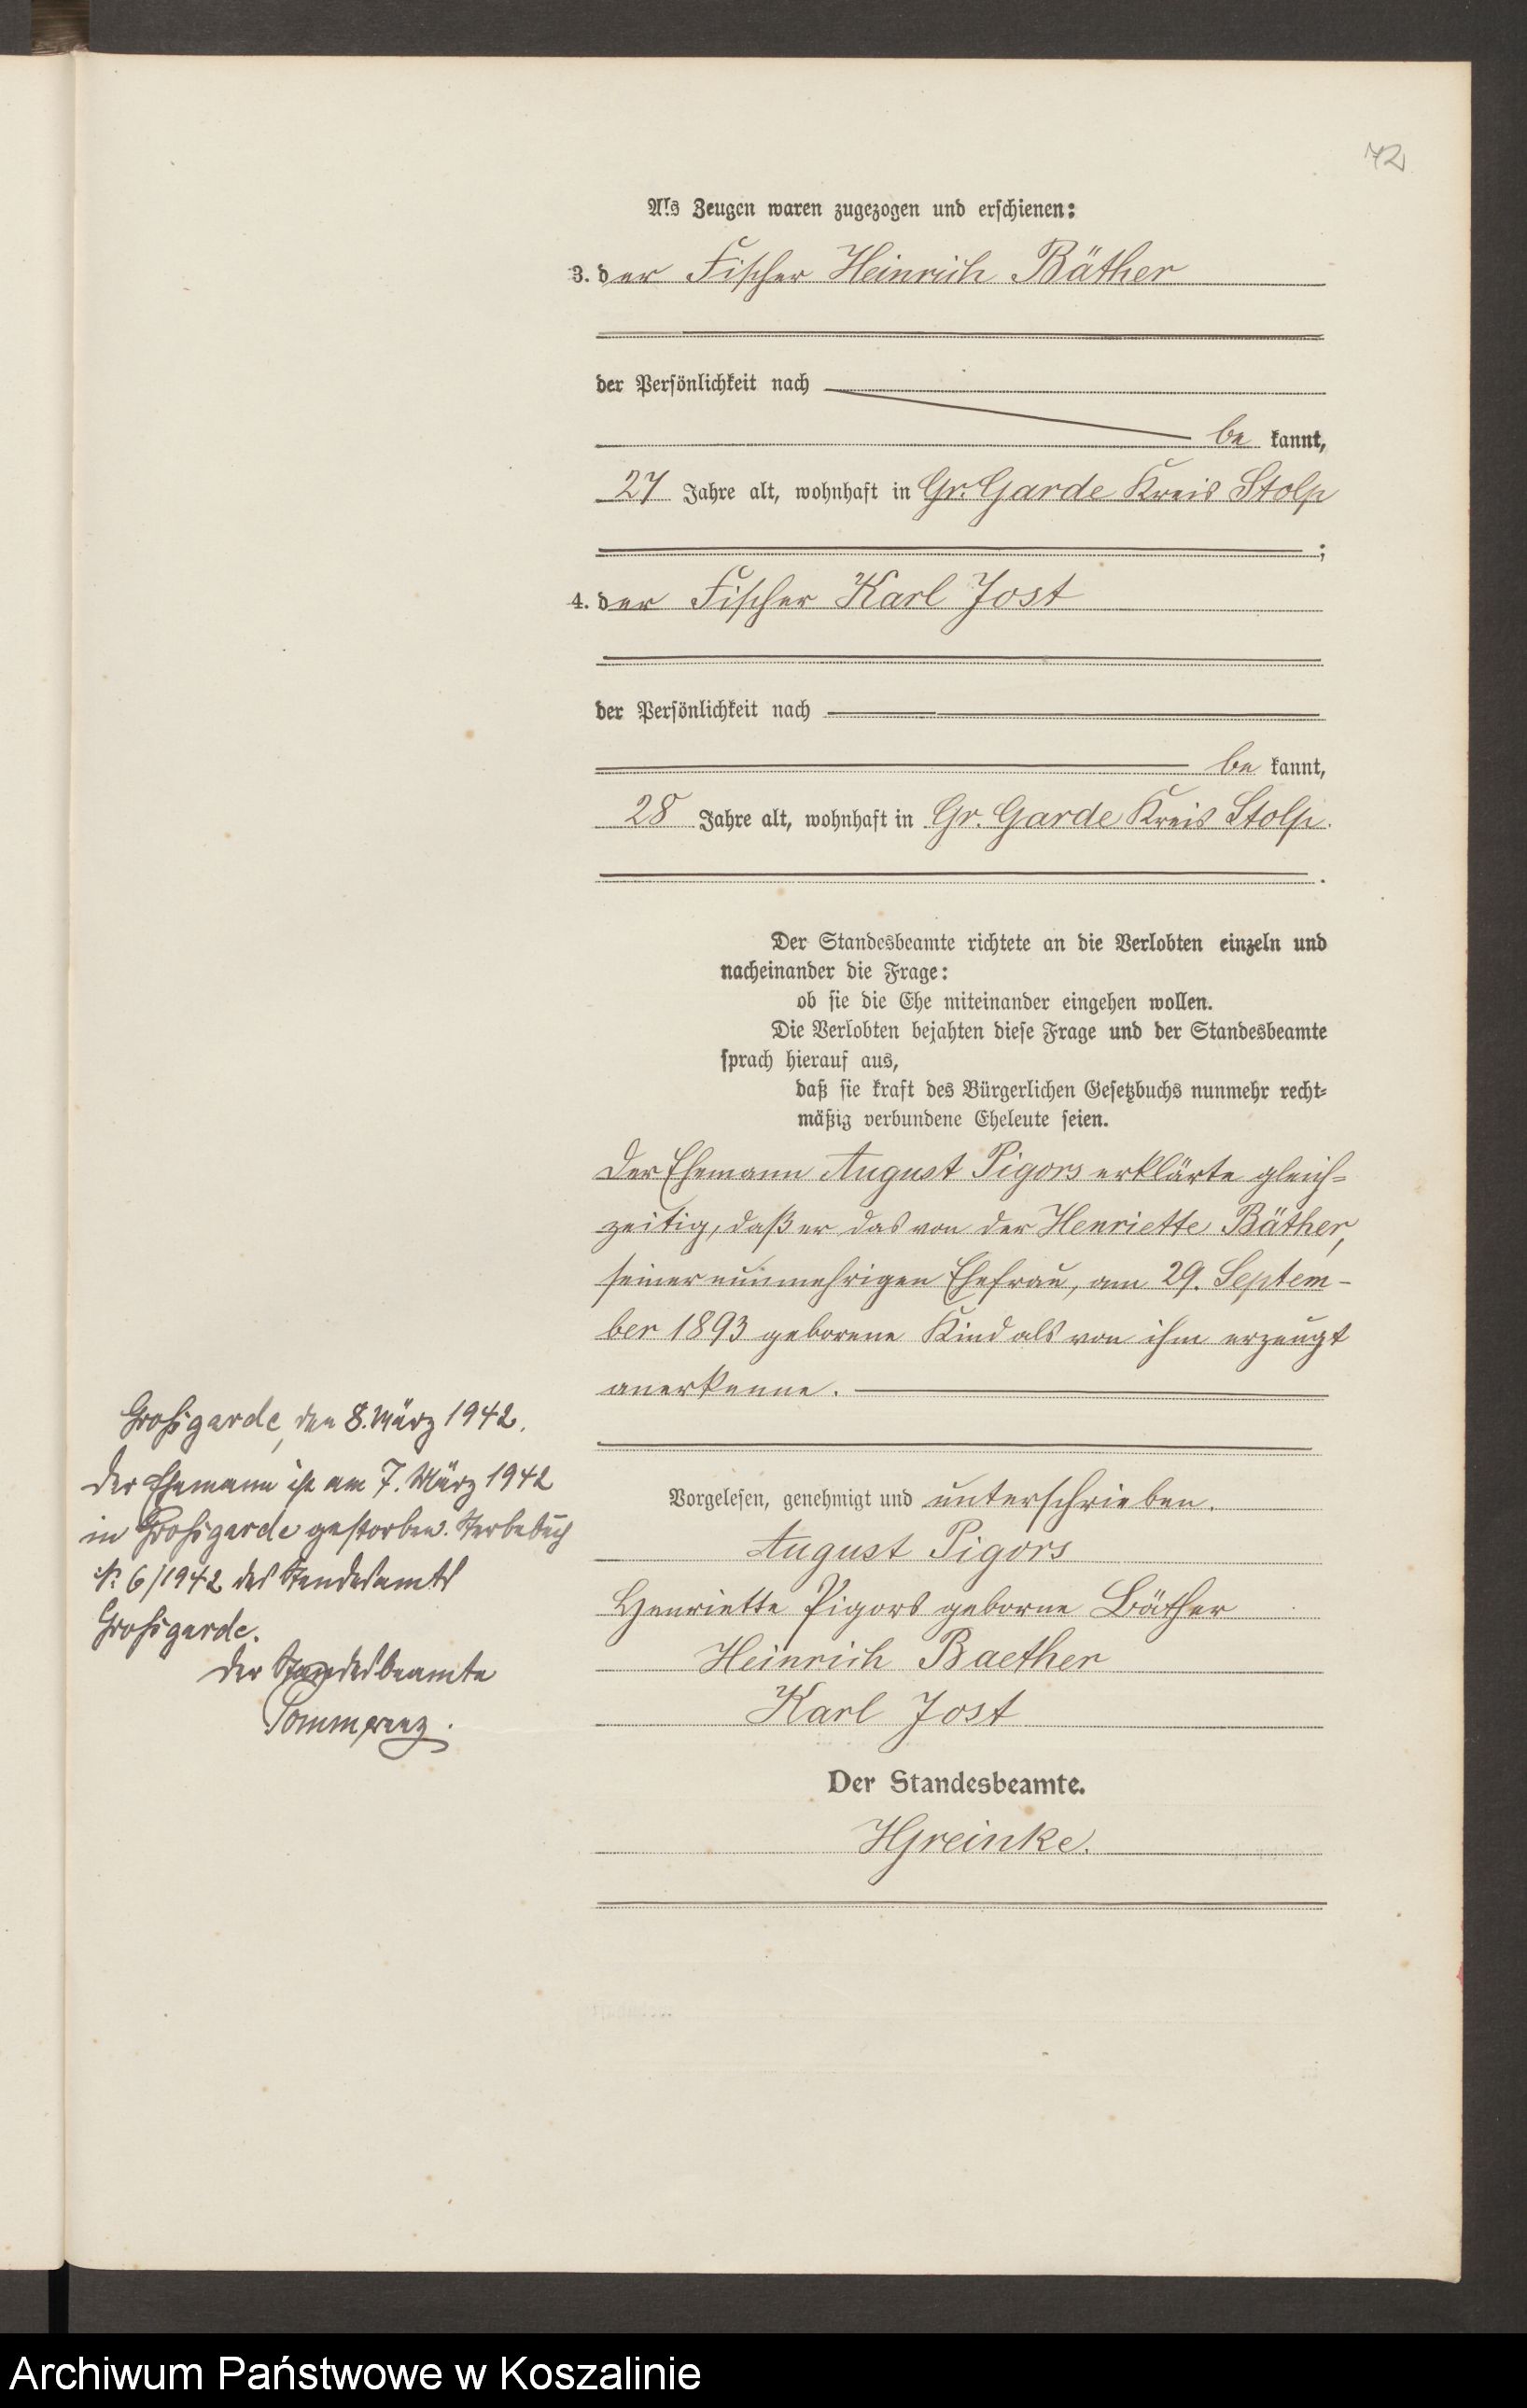 72
Als Zeugen waren zugezogen und erschienen:
3. der Fischer Heinrich Bäther
der Persönlichkeit nach
be kannt,
27 Jahre alt, wohnhaft in Gr. Garde Kreis Stolp
;
4. der Fischer Karl Jost
der Persönlichkeit nach
be kannt,
28 Jahre alt, wohnhaft in Gr. Garde Kreis Stolp.
.
Der Standesbeamte richtete an die Verlobten einzeln und
nacheinander die Frage:
ob sie die Ehe miteinander eingehen wollen.
Die Verlobten bejahten diese Frage und der Standesbeamte
sprach hierauf aus,
daß sie kraft des Bürgerlichen Gesetzbuchs nunmehr recht-
mäßig verbundene Eheleute seien.
Der Ehemann August Pigors erklärte gleich-
zeitig, daß er das von der Henriette Bäther,
seiner nunmehrigen Ehefrau, am 29. Septem-
ber 1893 geborene Kind als von ihm erzeugt
anerkenne.
Vorgelesen, genehmigt und unterschrieben.
August Pigors
Henriette Pigors geborne Bäther
Heinrich Baether
Karl Jost
Der Standesbeamte.
HGreinke.
Großgarde, den 8. März 1942.
Der Ehemann ist am 7. März 1942
in Großgarde gestorben. Sterbebuch
Nr. 6/1942 des Standesamts
Großgarde.
Der Standesbeamte
Pommerenz.
Archiwum Państwowe w Koszalinie